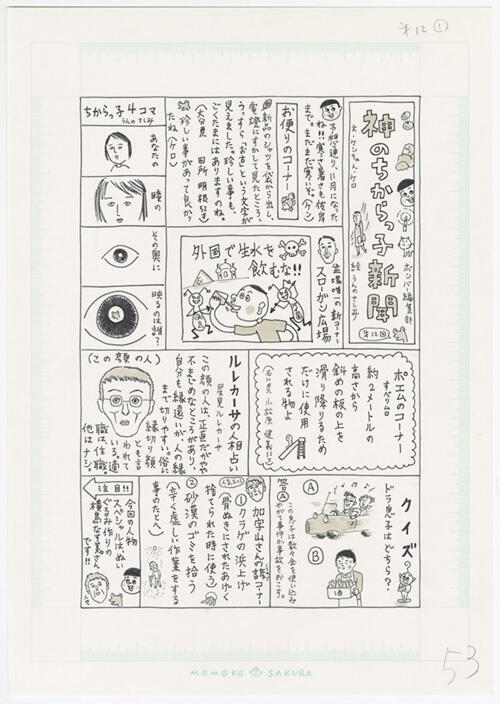 第12①
神のちからっ子新聞
ボンバー編集部
文・ケンちゃん・ケロ
絵・うんのさしみ
第12回
予想通り、11月になった
ね!!寒さ暑さも彼岸
まで。まだまだ寒いぞ。(ケロ)
お便りのコーナー
新品のシャツを袋から出し、
電燈にすかして見たところ、
うっすら「お古」という文字が
見えました。珍しい事も
ごくたまにはありますのね。
(大分県 田所明根
珍しい事があって良かっ
たね。(ケロ)
ちからっ子4コマ
うんのさしみ
あなたの
瞳の
その奥に
映るのは誰?
盆場唯一の新コーナー
スローガン広場
外国で生水を
飲むな!!
ポエムのコーナー
すべりムロ
約2メートルの
高さから
斜めの板の上を
滑り降りるため
だけに使用
される物よ
(石川県 小松原健義
ルレカーサの人相占い
星見ルレカーサ
(この顔の人)
この顔の人は、正直だがやや
不まじめなところがあり、
自分も縁遠いが、人の縁
まで切りやすい。俗に
縁切り顔
とも言
われて
いる。適
職は、住職。
他はナシ。
クイズ
ドラ息子はどちら?
Ⓐ
Ⓑ
酒
答Ⓐ
この息子は散々金を使い込み
やがて事件か事故をおこす。
人気コーナー
加字山さんの諺コーナー
①クラゲの浜上げ
(骨ぬきにされたあげく
捨てられた時に使う)
②砂漠のゴミを拾う
(辛く虚しい作業をする
事のたとえ)
注目!!
今回の人物
スペシャルは、ぬい
ぐるみ作りの
横島なす美さん
です!!
53
MOMOKO SAKURA